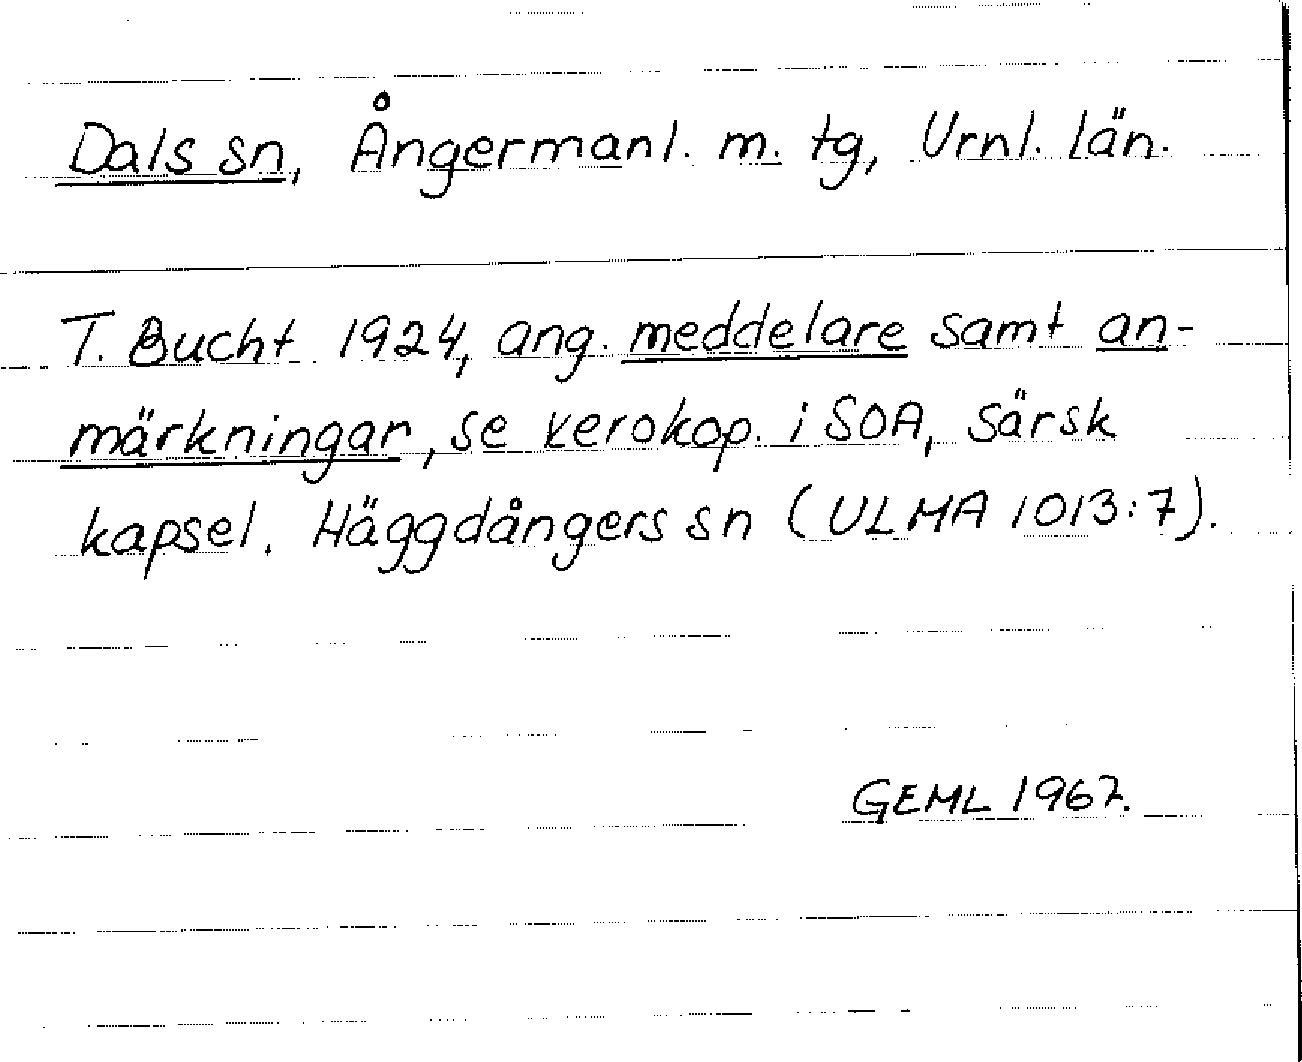 Dals sn, Ångermanl. m. tg, Vrnl. län.
T. Bucht 1924, ang. meddelare samt an-
märkningar, se xerokop. i SOA, särsk
kapsel. Häggdångers sn (ULMA 1013:7).
GEML 1967.